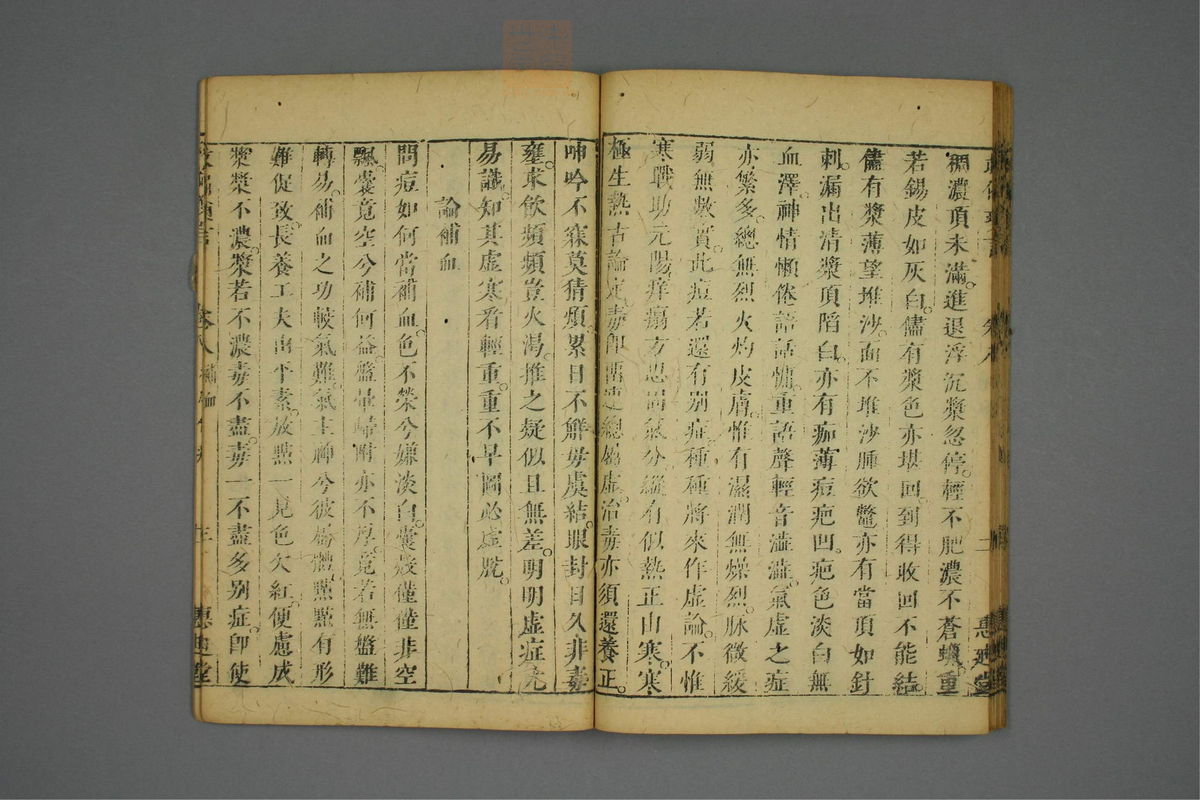 稠濃頂未滿進退浮沉漿忽停輕不肥濃不蒼蠟重
若錫皮如灰白儘有漿色亦堪回到得收回不能結
儘有漿薄望堆沙面不堆沙腫欲鱉亦有當頂如針
刺漏出清漿頂陷白亦有痂薄痘疤凹疤色淡白無
血澤神情懶倦語話慵重語聲輕音澁澁氣虛之症
亦繁多總無烈火灼皮膚惟有濕潤無燥烈脉微緩
弱無數實此痘若還有別症種種將來作虛論不惟
寒戰助元陽癢塌方思固氣分縱有似熱正由寒寒
極生熱古論定毒卽團總屬虛治毒亦須還養正
呻吟不寐莫猜煩累日不觧毋虞結眼封日久非毒
壅求飲頻頻豈火渴推之疑似且無差明明虛症充
易識知其虛寒看輕重重不早圖必虛脫
論補血
問痘如何當補血色不榮兮嫌淡白囊殼僅僅非空
飄囊竟空兮補何益盤暈歸附亦不厚竟若無盤難
轉易補血之功較氣難氣主神兮彼屬體㸃㸃有形
難促致長養工夫由平素放㸃一見色欠紅便慮成
漿漿不濃漿若不濃毒不盡毒一不盡多別症卽使
卷八 補血
惠迪堂